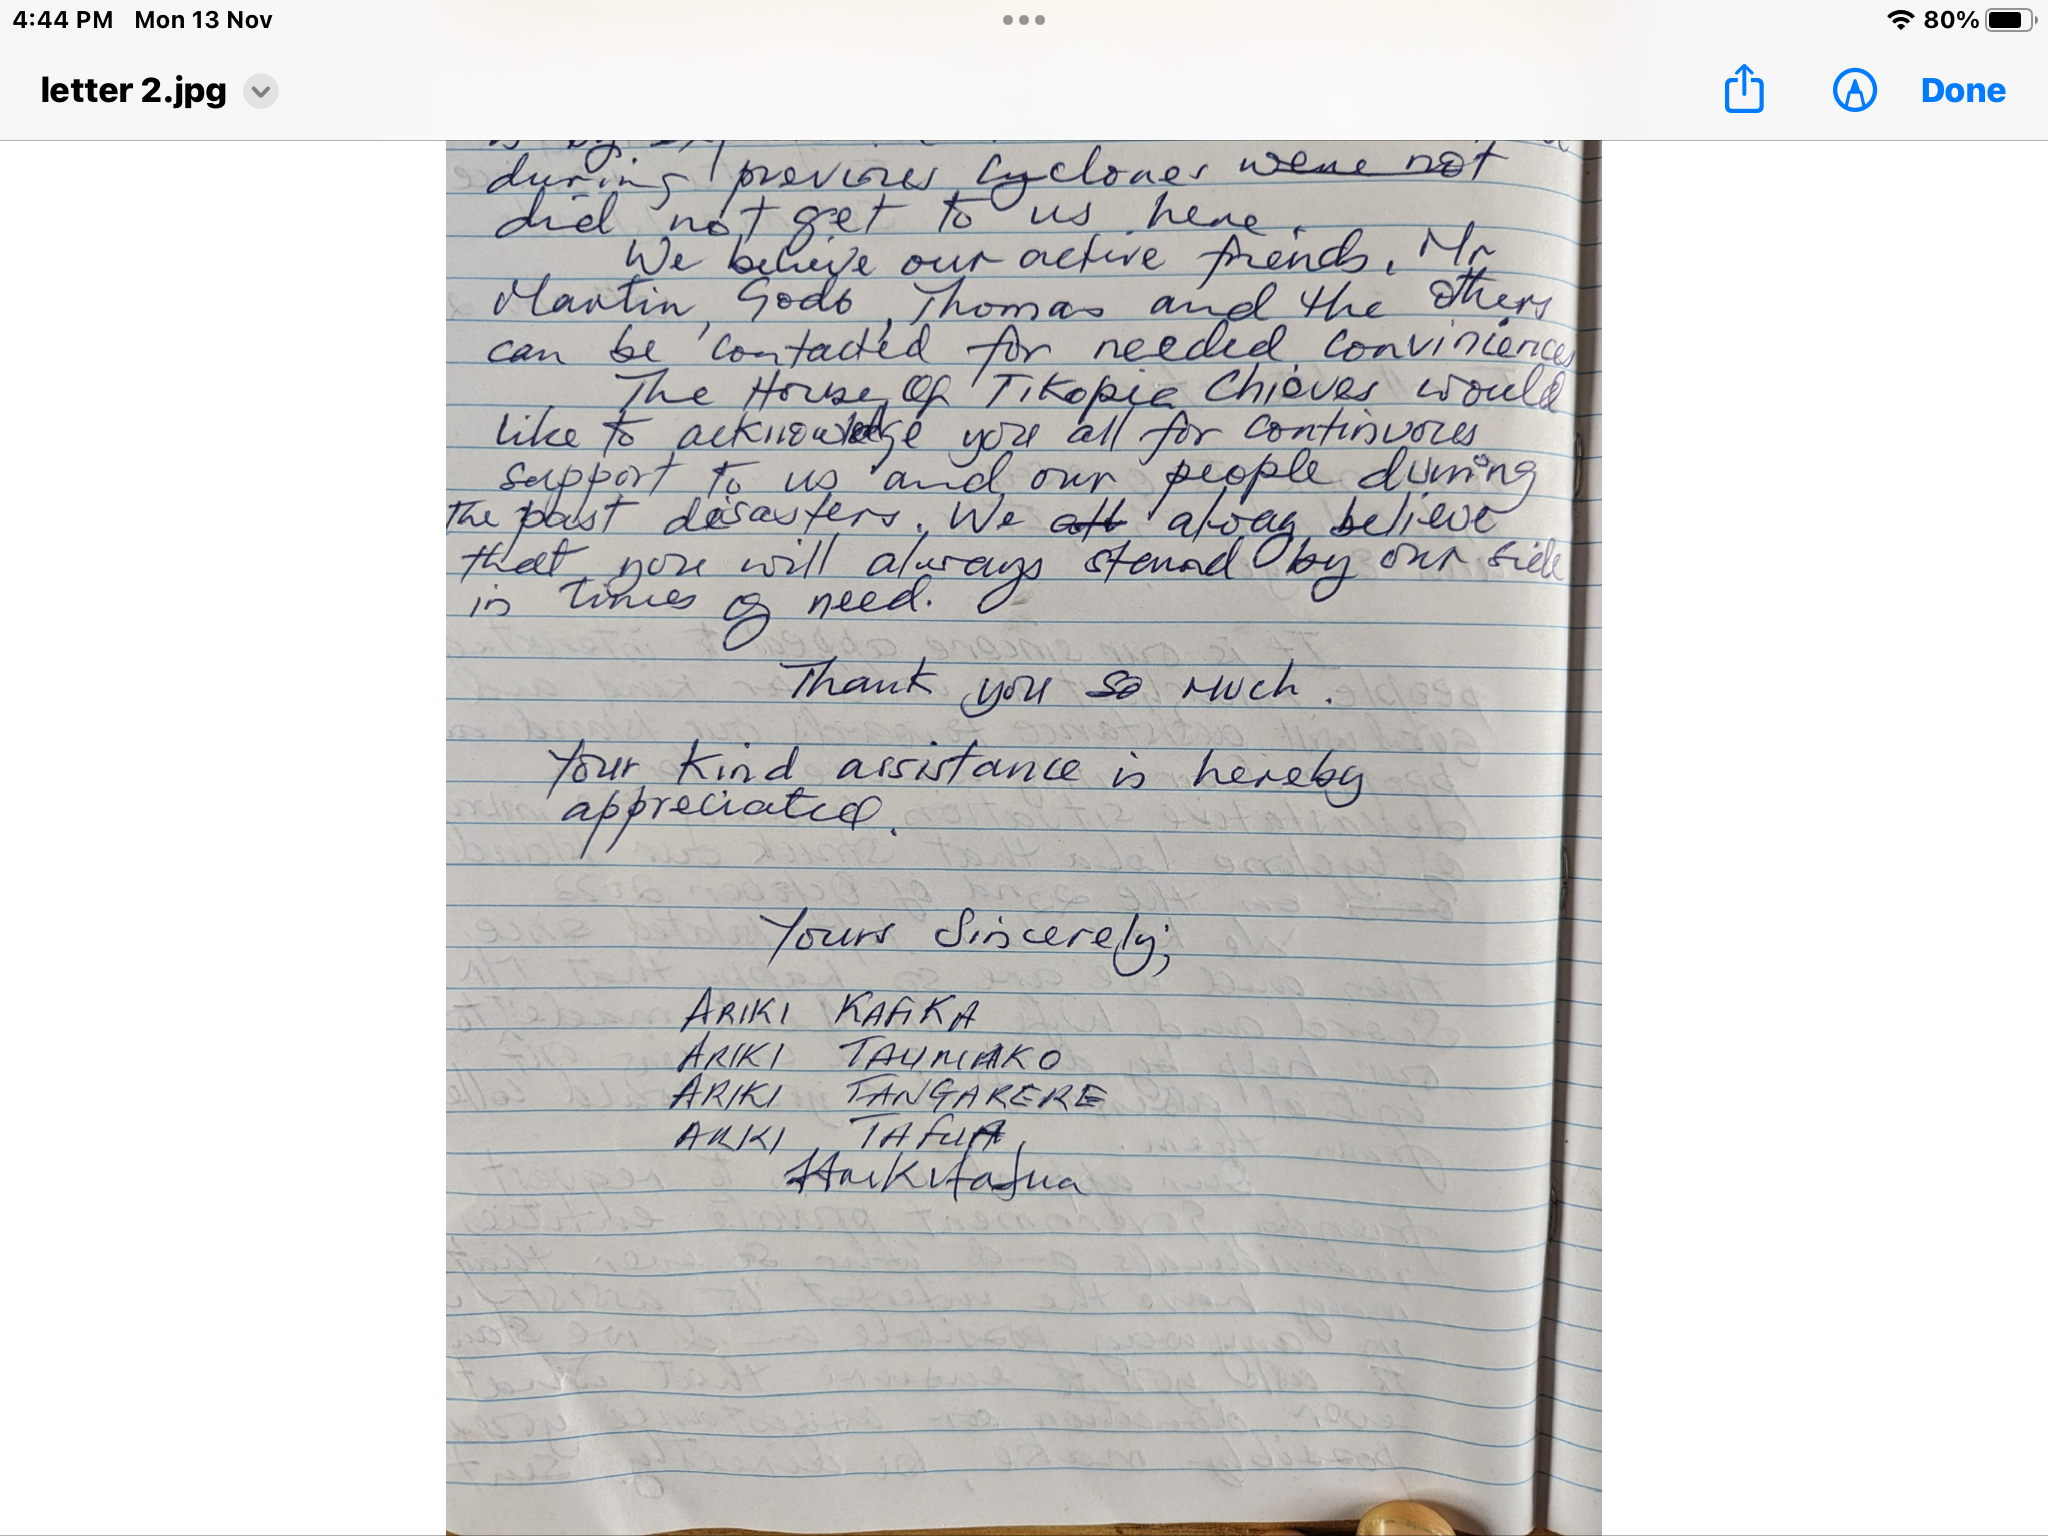 4:44 PM Mon 13 Nov
80%
letter 2.jpg
Done
is by
during previous cyclones were not
did not get to us here.
We believe our active friends, Mr
Martin, Godo, Thomas and the others
can be contacted for needed conviniences
The House of Tikopia Chieves would
like to acknowledge you all for continuous
support to us and our people during
the past desasters. We all alway believe
that you will always stannd by our side
in times of need.
Thank you so much.
Your kind assistance is hereby
appreciated.
Yours Sincerely;
ARIKI KAFIKA
ARIKI TAUMAKO
ARIKI TANGARERE
ARIKI TAFUA